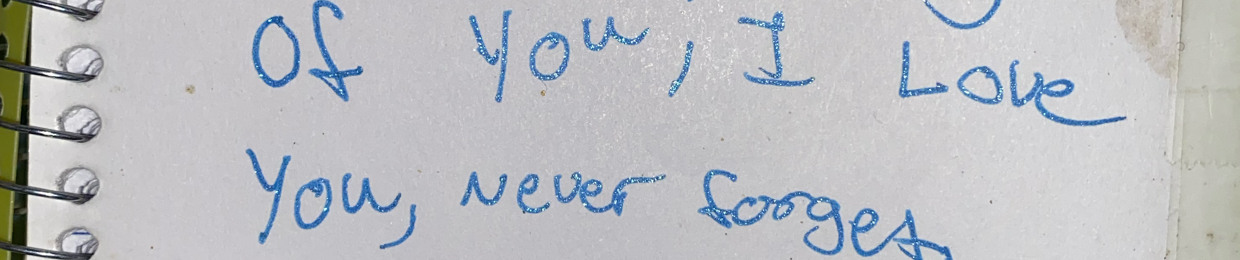 Of you, I Love
You, never forget